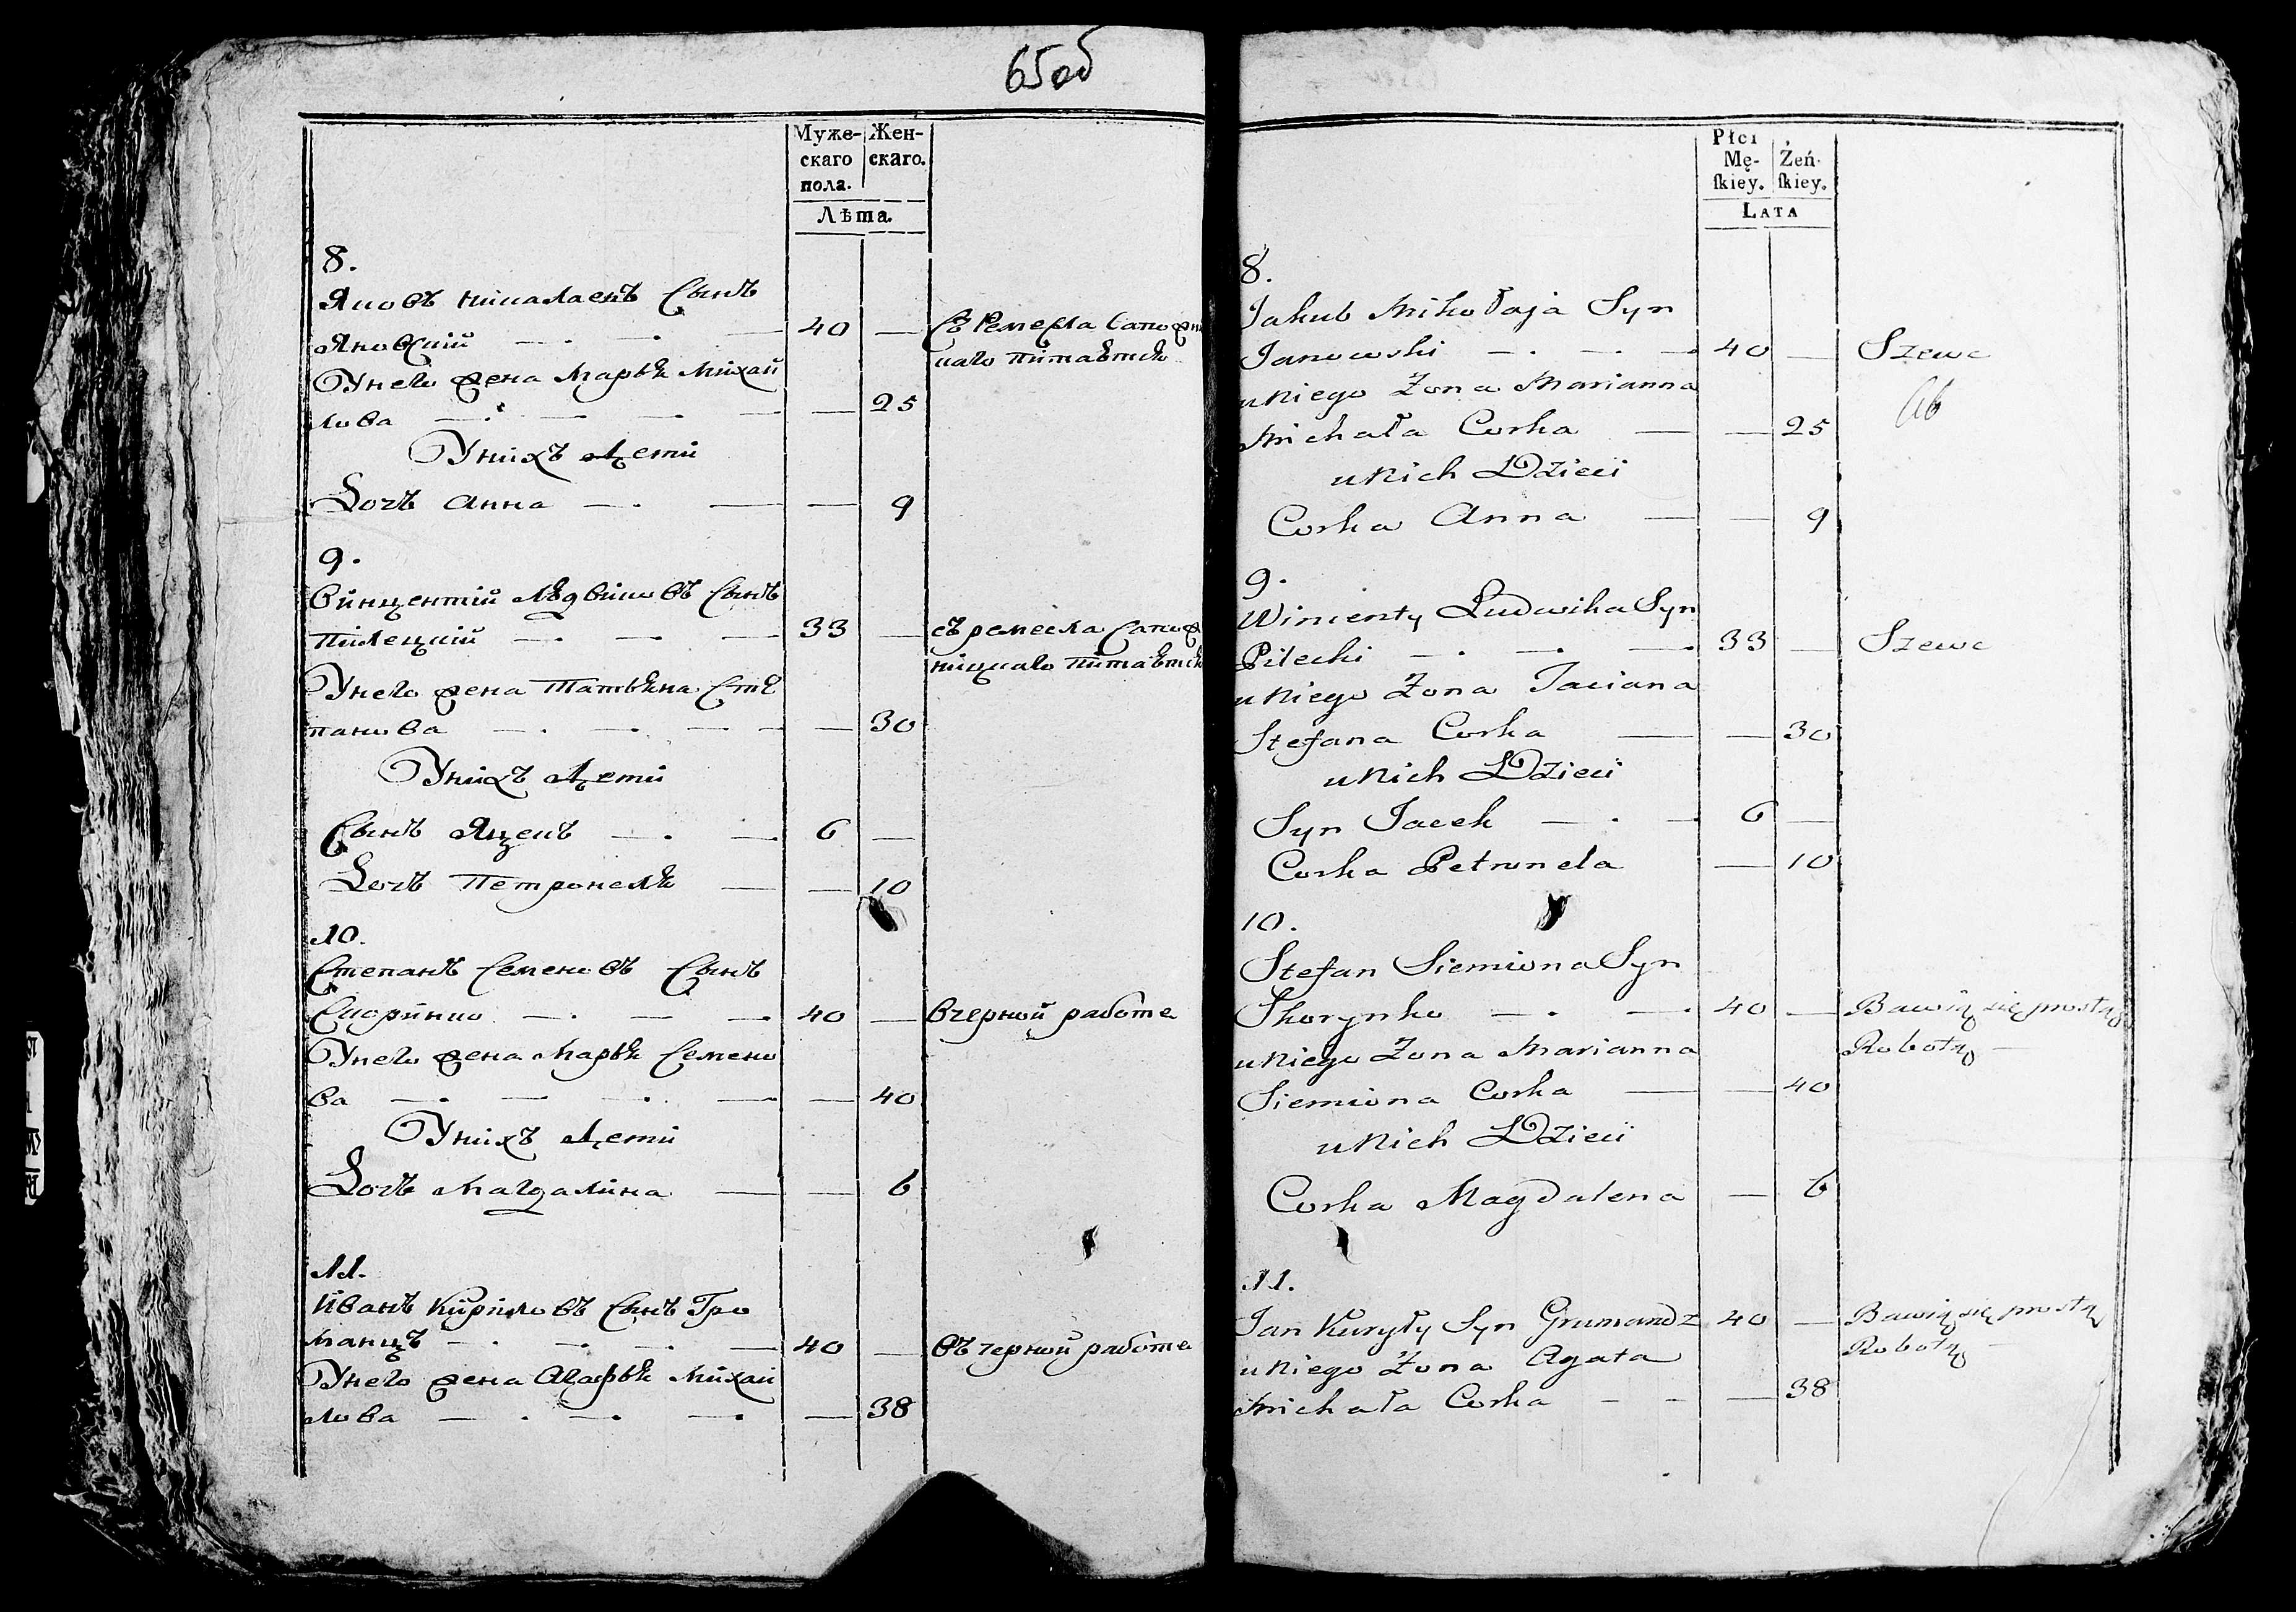 65об
Муже- Жен-
скаго скаго.
пола.
Лѣта.
8.
Яковъ Николаевъ Сынъ
Яновскій — . — . — 40 — Съ Ремесла Сапожни
Унего жена Марья Михай цкаго питается
лова — . — . — — 25
Унихъ Дети
Дочь Анна — . — — 9
9.
Винцентій Людвиковъ Сынъ
Пилецкій — . — . — 33 — съ ремесла Сапож
Унего жена Татьяна Сте ницкаго питается
панова — . — . — — 30
Унихъ Дети
Сынъ Яцекъ — . — 6 —
Дочь Петронеля — — 10
10.
Степанъ Семеновъ Сынъ
Скоринко — . — — 40 — Вчерной работе
Унего жена Марья Семено
ва — . — . — — 40
Унихъ Дети
Дочь Магдалина — — 6
11.
Иванъ Кириловъ Сынъ Гро
манцъ — . — . — 40 — Въ черной работе
Унего жена Агафья Михай
лова — . — . — — 38
Płci
Mę- Żeń-
ſkiey. ſkiey.
LATA
8.
Jakub Mikołaja Syn
Janowski — . — . — 40 — Szewc
uniego Żona Marianna
Michała Corka — — 25
unich Dzieci
Corka Anna — — 9
9.
Wincenty Ludwika Syn
Pilecki — . — . — 33 — Szewc
uniego Żona Taciana
Stefana Corka — — 30
unich Dzieci
Syn Jacek — . — 6 —
Corka Petronela — 10
10.
Stefan Siemiona Syn
Skorynko — . — . 40 — Bawią się prostą
uniego Żona Marianna Robotą —
Siemiona Corka — — 40
unich Dzieci
Corka Magdalena — 6
11.
Jan Kuryły Syn Grumandz 40 — Bawią się prostą
uniego Żona Agata Robotą —
Michała Corka — - — 38